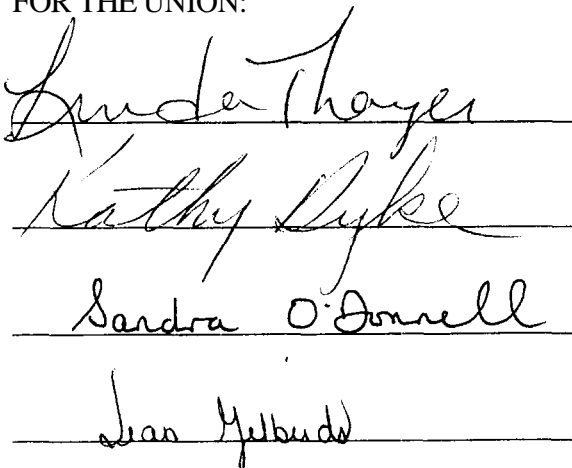 FOR THE UNION:
Linda Thayer
Kathy Dyke
Sandra O'Donnell